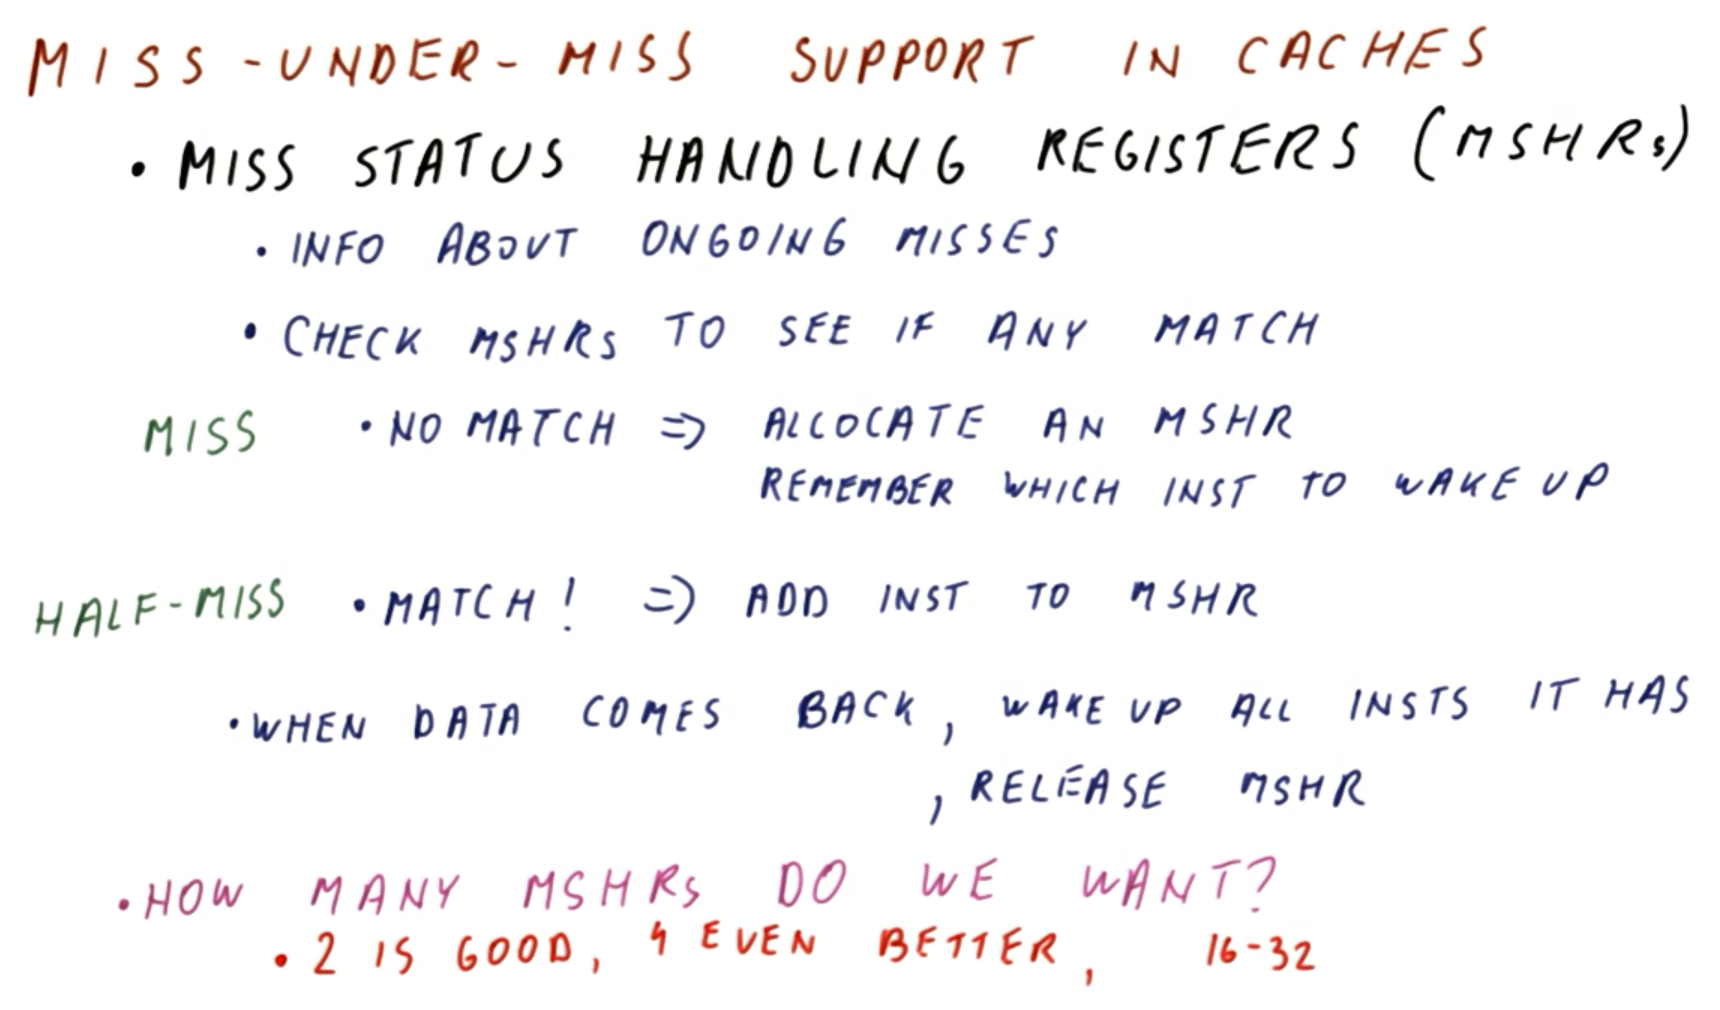 MISS-UNDER-MISS SUPPORT IN CACHES
• MISS STATUS HANDLING REGISTERS (MSHRs)
• INFO ABOUT ONGOING MISSES
• CHECK MSHRs TO SEE IF ANY MATCH
MISS • NO MATCH => ALLOCATE AN MSHR
REMEMBER WHICH INST TO WAKE UP
HALF-MISS • MATCH! => ADD INST TO MSHR
• WHEN DATA COMES BACK, WAKE UP ALL INSTS IT HAS
, RELEASE MSHR
• HOW MANY MSHRs DO WE WANT?
• 2 IS GOOD, 4 EVEN BETTER, 16-32